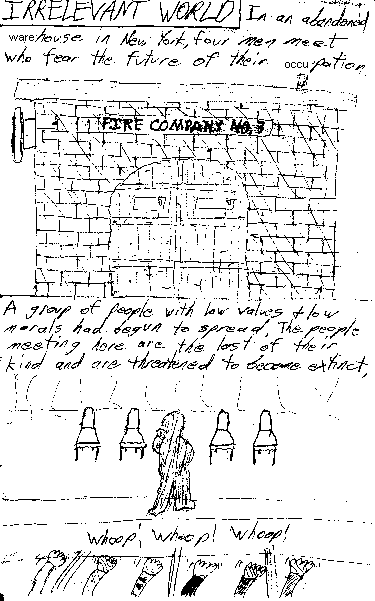 IRRELEVANT WORLD
In an abandoned
warehouse in New York, four men meet
who fear the future of their occupation
FIRE COMPANY NO. 3
A group of people with low values + low
morals had begun to spread. The people
meeting here are the last of their
kind and are threatened to become extinct.
Whoop! Whoop! Whoop!